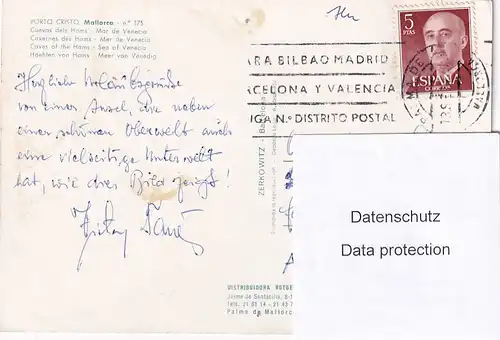 PORTO CRISTO, Mallorca - n.º 175
Cuevas dels Hams - Mar de Venecia
Cavernes des Hams - Mer de Venecia
Caves of the Hams - Sea of Venecia
Hoehlen von Hams - Meer von Venedig
Herzliche Urlaubsgrüsse
von einer Insel, die neben
einer schönen Oberwelt auch
eine vielseitige Unterwelt
hat, wie dies Bild zeigt!
5
PTAS
ESPAÑA
CORREOS
PARA BILBAO MADRID
BARCELONA Y VALENCIA
DIGA N.º DISTRITO POSTAL
ZERKOWITZ - Barcelona
DISTRIBUIDORA ROTGER
Jaime de Santacilia, 8-
Tels. 21 03 14 - 21 43 7
Palma de Mallorca
Datenschutz
Data protection